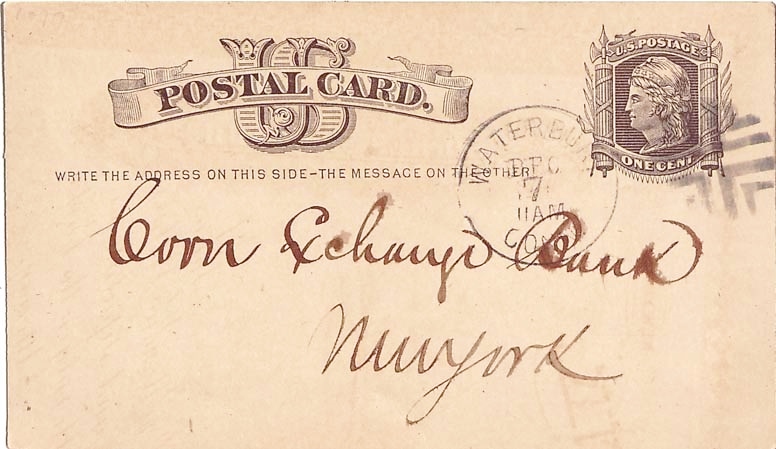 U.S. POSTAGE
ONE CENT
US
POSTAL CARD.
WRITE THE ADDRESS ON THIS SIDE-THE MESSAGE ON THE OTHER
DEC
7
11AM
Corn Exchange Bank
New York